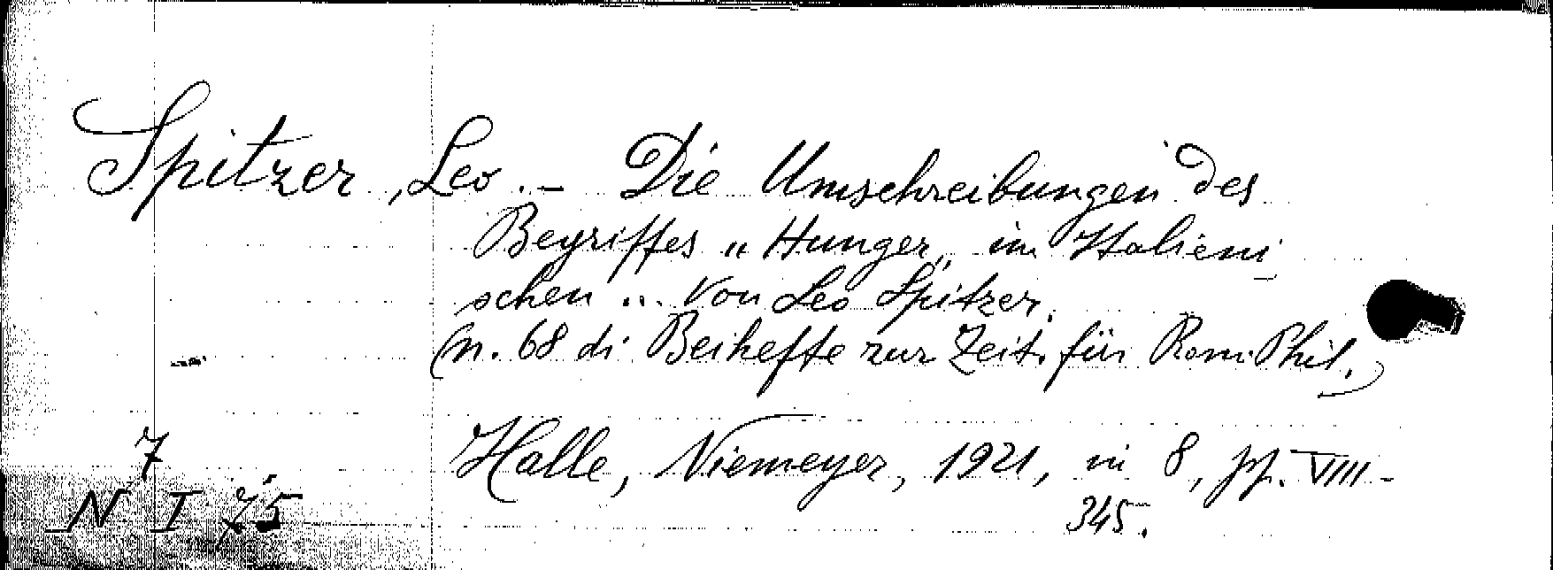 Spitzer, Leo. - Die Umschreibungen des
Begriffes „Hunger„ im Italieni_
schen ... Von Leo Spitzer.
(n. 68 di Beihefte zur Zeit. für Rom. Phil.)
Halle, Niemeyer, 1921, in 8, pp. VIII-
345.
7
N I 75